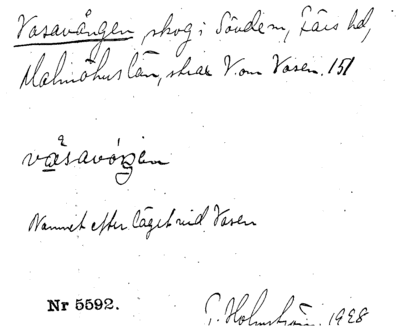 Vasavången, skog i Sövdem, Färs hd,
Malmöhus län, strax V. om Vasen. 151
våsavóŋen
Namnet efter läget vid Vasen
Nr 5592.
G. Holmström 1928